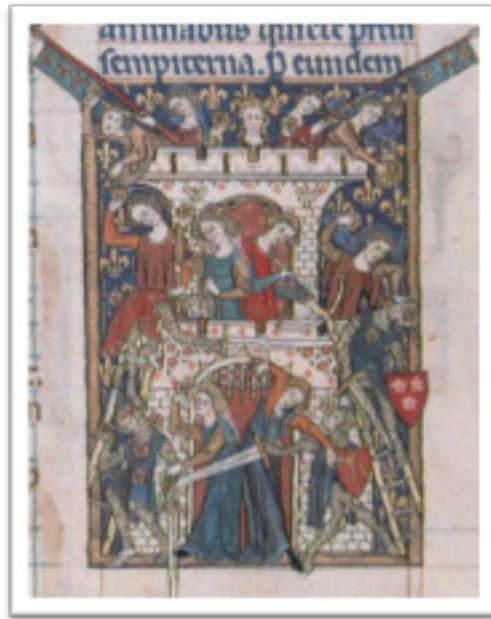 animabus quiete prin
sempiterna. P eundem